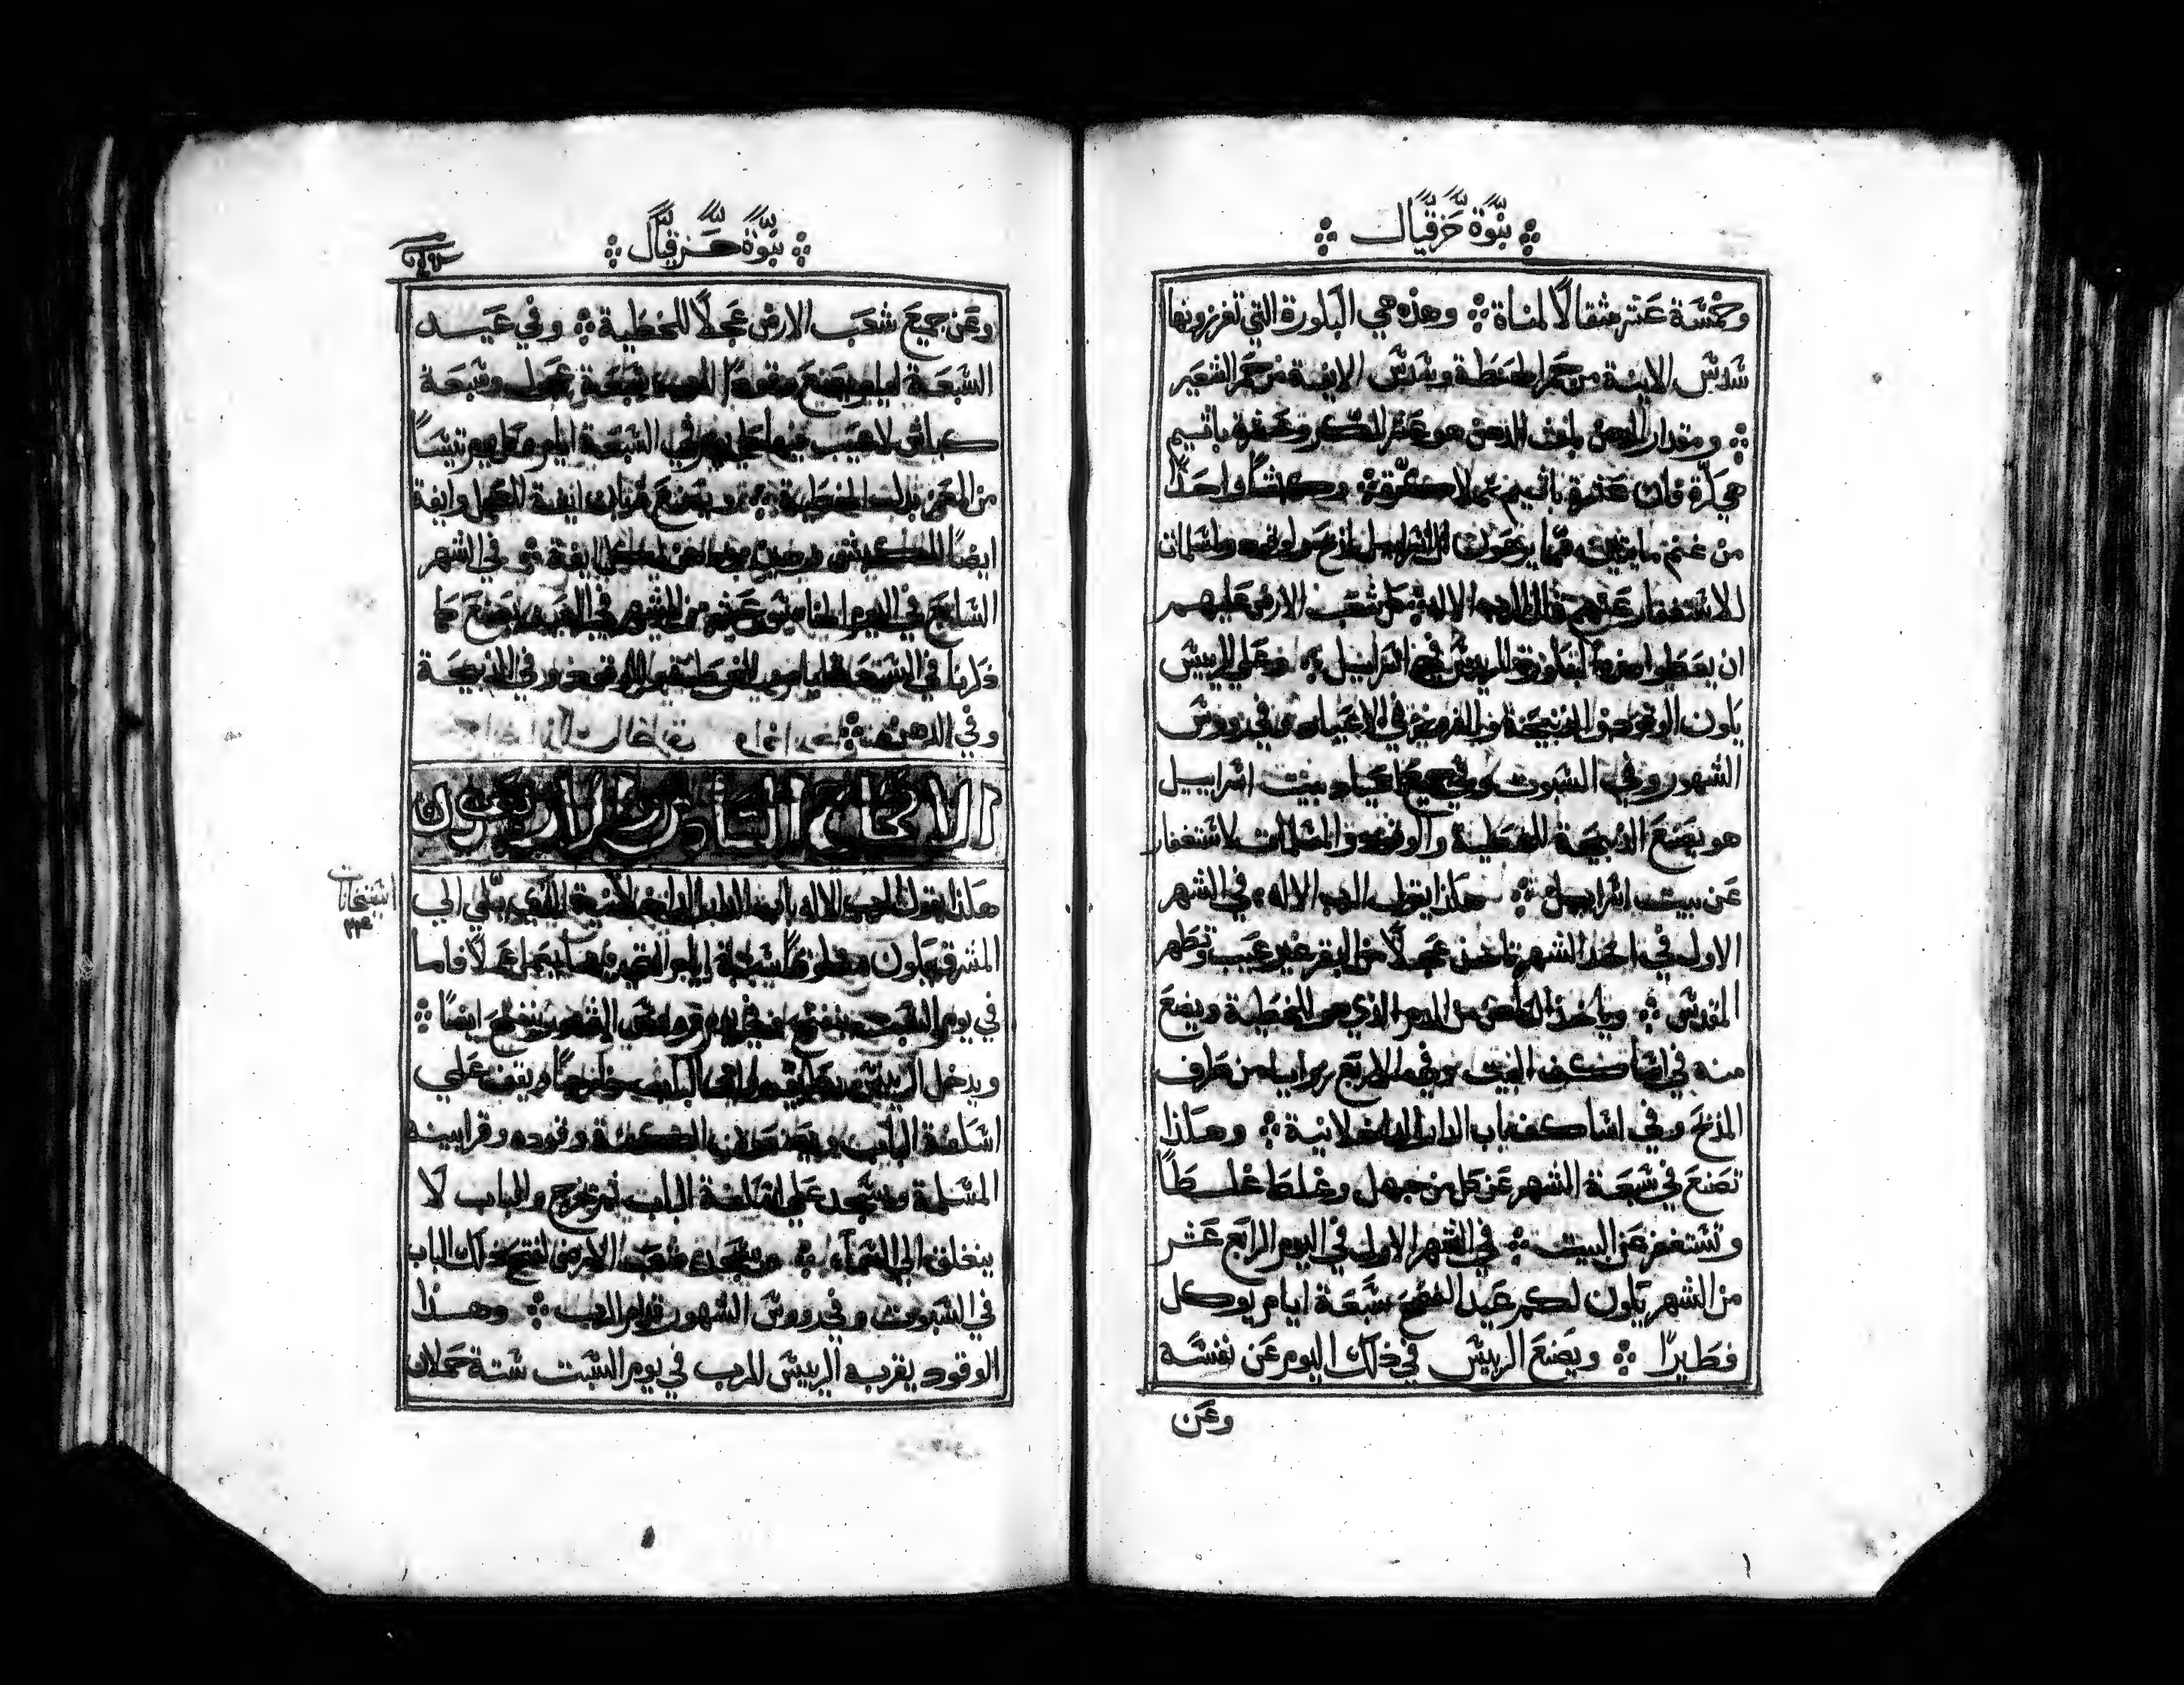 نبوة حزقيال
وخمسة عشر مثقالًا لمناة ۞ وهذه هي البكورة التي تفرزونها
سُدس الايفة من كر الحنطة وسُدس الايفة من كر الشعير
۞ ومقدار الدهن بلوث الدهن هو عشر الكر وعشرة باثيم
هي كرّة فان عشرة باثيم تملا كرّة ۞ وكبشًا واحدًا
من غنم مايتين
للاستغفار عنهم قال الرب الاله ۞ كل شعب الارض عليهم
ان يعطوا هذه البكورة لرييس في اسراييل ۞ وعلي الرييس
يكون الوقود والذبيحة والفريق في الاعياد وفي رووس
الشهور وفي السبوت وفي جميع اعياد بيت اسراييل
هو يصنع الذبيحة للخطية والوقود والمسلمات لاستغفار
عن بيت اسراييل ۞ هكذا يقول الرب الاله في الشهر
الاول في احد الشهر تاخذ عجلًا من البقر غير عيب وتطهر
المقدس ۞ وياخذ الكاهن من الدم الذي هو للخطية ويضع
منه في اساكف البيت وفي الاربع زوايا من طرف
المذبح وفي اساكف باب الدار الداخلانية ۞ وهكذا
تصنع في سبعة الشهر عن كل من جهل وغلط غلطًا
وتستغفر عن البيت ۞ في الشهر الاول في اليوم الرابع عشر
من الشهر يكون لكم عيد الفصح سبعة ايام يوكل
فطيرًا ۞ ويصنع الرييس في ذلك اليوم عن نفسه
وعن
نبوة حزقيال
وعن جميع شعب الارض عجلًا للخطية ۞ وفي عيد
السبعة ايام يصنع وقودًا للرب سبعة عجول وسبعة
كباش لا عيب فيها كل يوم في السبعة ايام وكل يوم تيسًا
من المعز بدل الخطية ۞ ويصنع قربان ايفة للعجل وايفة
ايضًا للكبش وهين دهن لكل ايفة ۞ في الشهر
السابع في اليوم الخامس عشر من الشهر في العيد يصنع كما
ذكرنا في السبعة ايام وفي الوقود وفي الذبيحة
وفي الدهن ۞
الاصحاح السادس والاربعون
هكذا يقول الرب الاله باب الدار الداخلانية الذي يلي الي
المشرق يكون مغلوقًا ستة ايام التي فيها يعمل عملًا فاما
في يوم السبت ينفتح وفي يوم رووس الشهور ينفتح ايضًا ۞
ويدخل الرييس بطريق الباب خارجًا ويقف علي
اسكفة الباب ويصنع الكهنة وقوده وقرابينه
المسلمة ويسجد علي اسكفة الباب ثم يخرج والباب لا
ينغلق الي المساء ۞ ويسجد شعب الارض لفتح ذلك الباب
في السبوت وفي رووس الشهور قدام الرب ۞ وهذا
الوقود يقربه الرييس للرب في يوم السبت ستة حملان